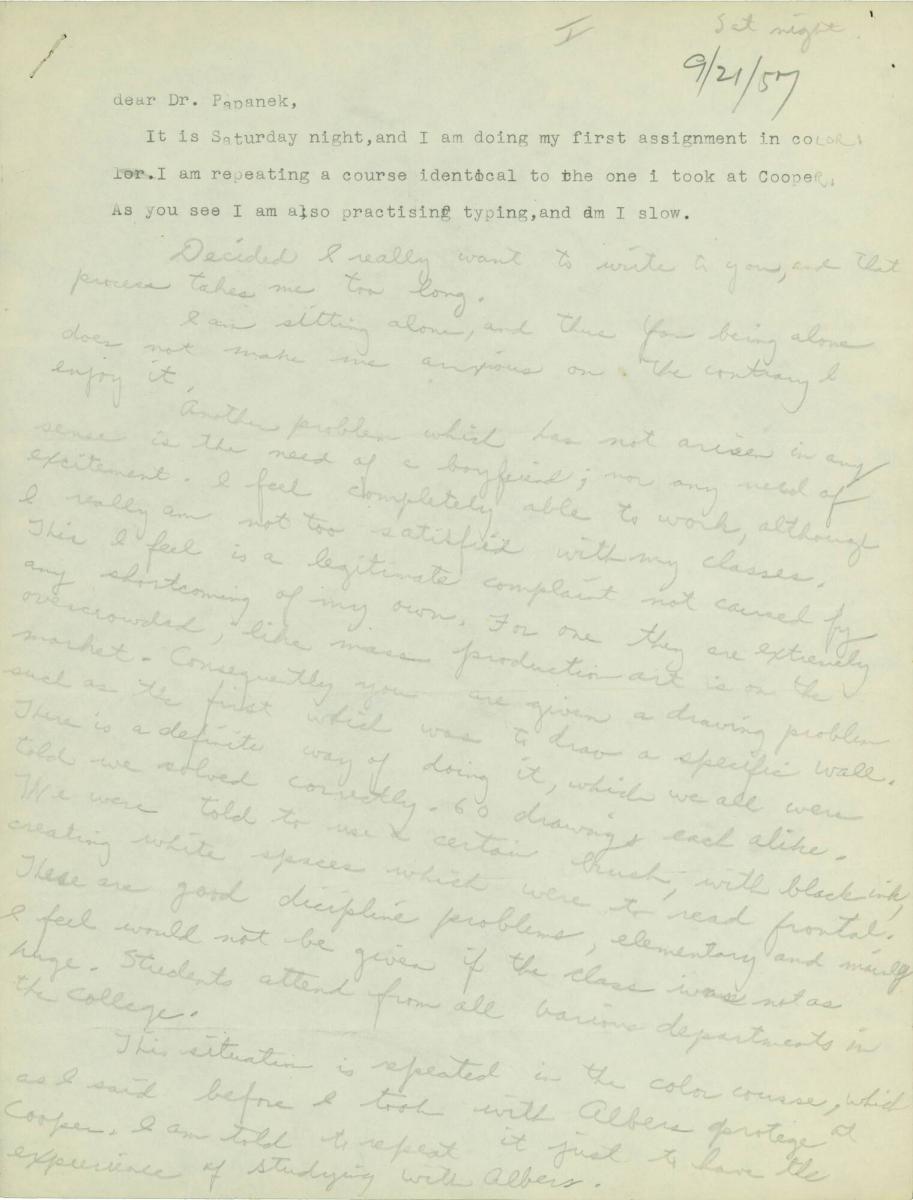 I
Sat night.
9/21/57
dear Dr. Papanek,
It is Saturday night,and I am doing my first assignment in coLOR.
lor.I am repeating a course identical to the one i took at CoopeR.
As you see I am also practising typing,and dm I slow.
Decided I really want to write to you, and that
process takes me too long.
I am sitting alone, and thus far being alone
does not make me anxious on the contrary I
enjoy it.
Another problem which has not arisen in any
sense is the need of a boyfriend; nor any need of
excitement. I feel completely able to work, although
I really am not too satisfied with my classes.
This I feel is a legitimate complaint not caused by
any shortcoming of my own. For one they are extremely
overcrowded, like mass production art is on the
market. Consequently you are given a drawing problem
such as the first which was to draw a specific wall.
There is a definite way of doing it, which we all were
told we solved correctly. 60 drawings each alike.
We were told to use a certain brush, with black ink,
creating white spaces which were to read frontal.
These are good discipline problems, elementary and mainly
I feel would not be given if the class was not as
huge. Students attend from all various departments in
the college.
This situation is repeated in the color course, which
as I said before I took with Albers protege at
Cooper. I am told to repeat it just to have the
experience of studying with Albers.